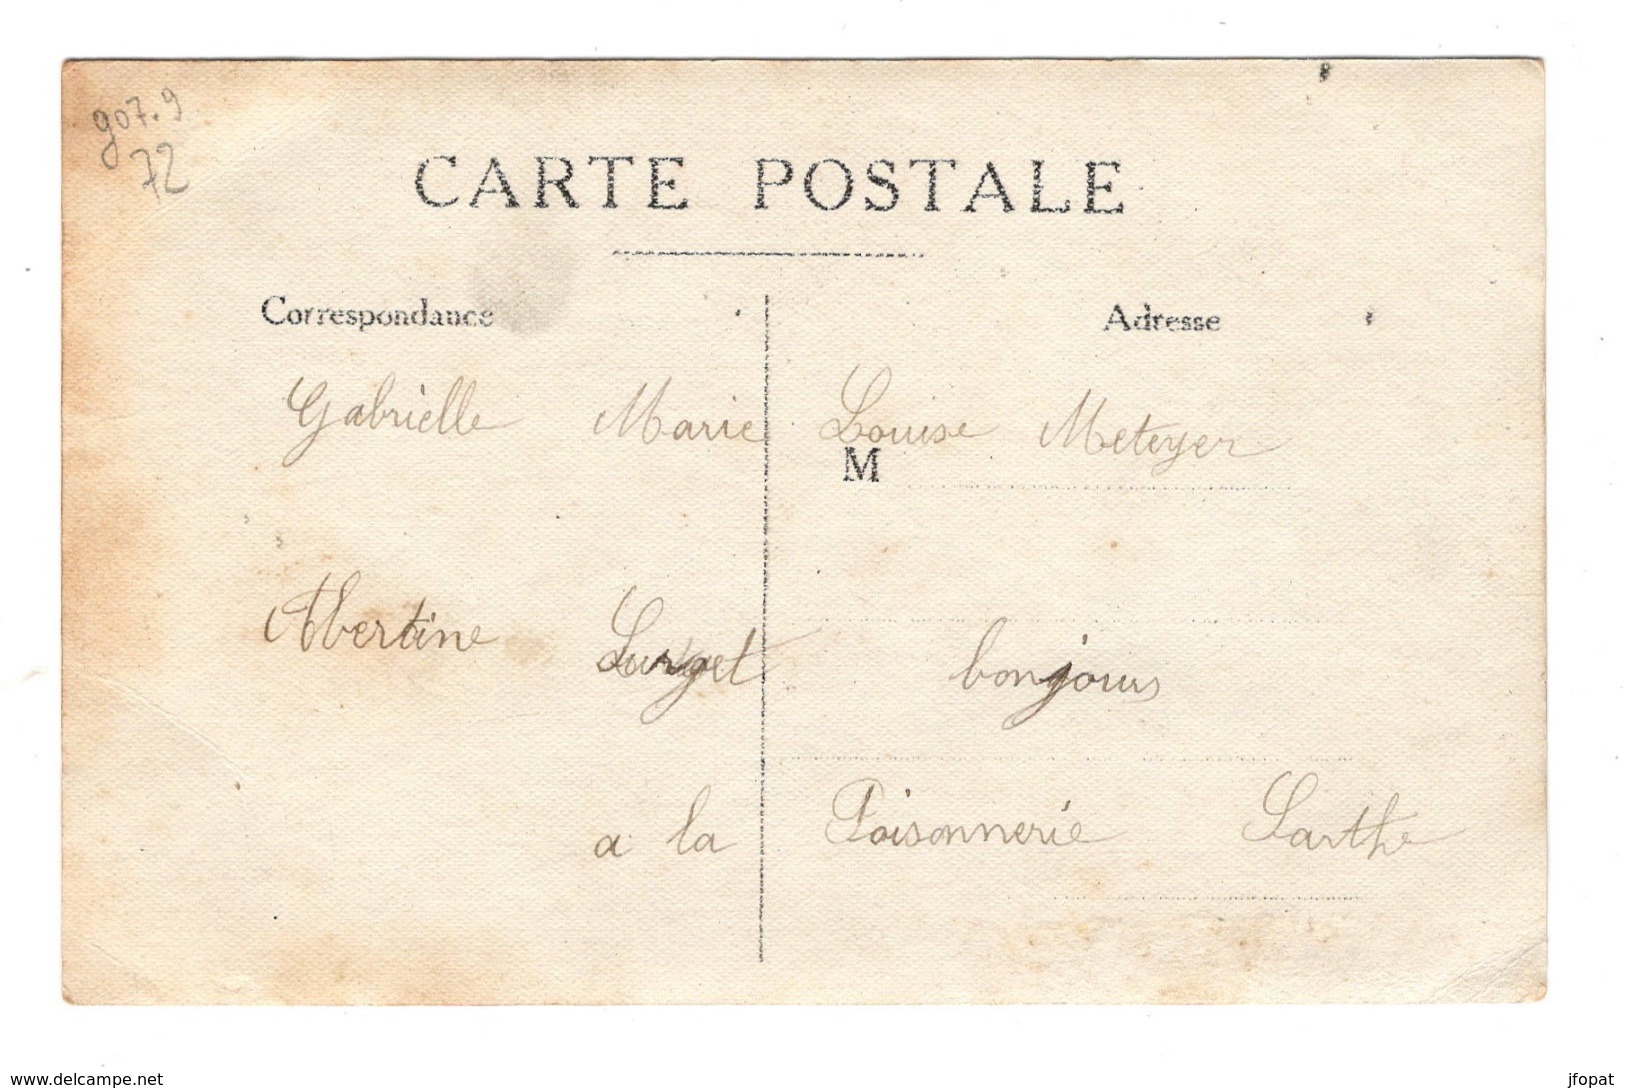 907.9
72
CARTE POSTALE
Correspondance
Adresse
Gabrielle Marie Louise Meteyer
M
Abertine Lurget bonjours
a la Poisonnerie Sarthe
www.delcampe.net
jfopat